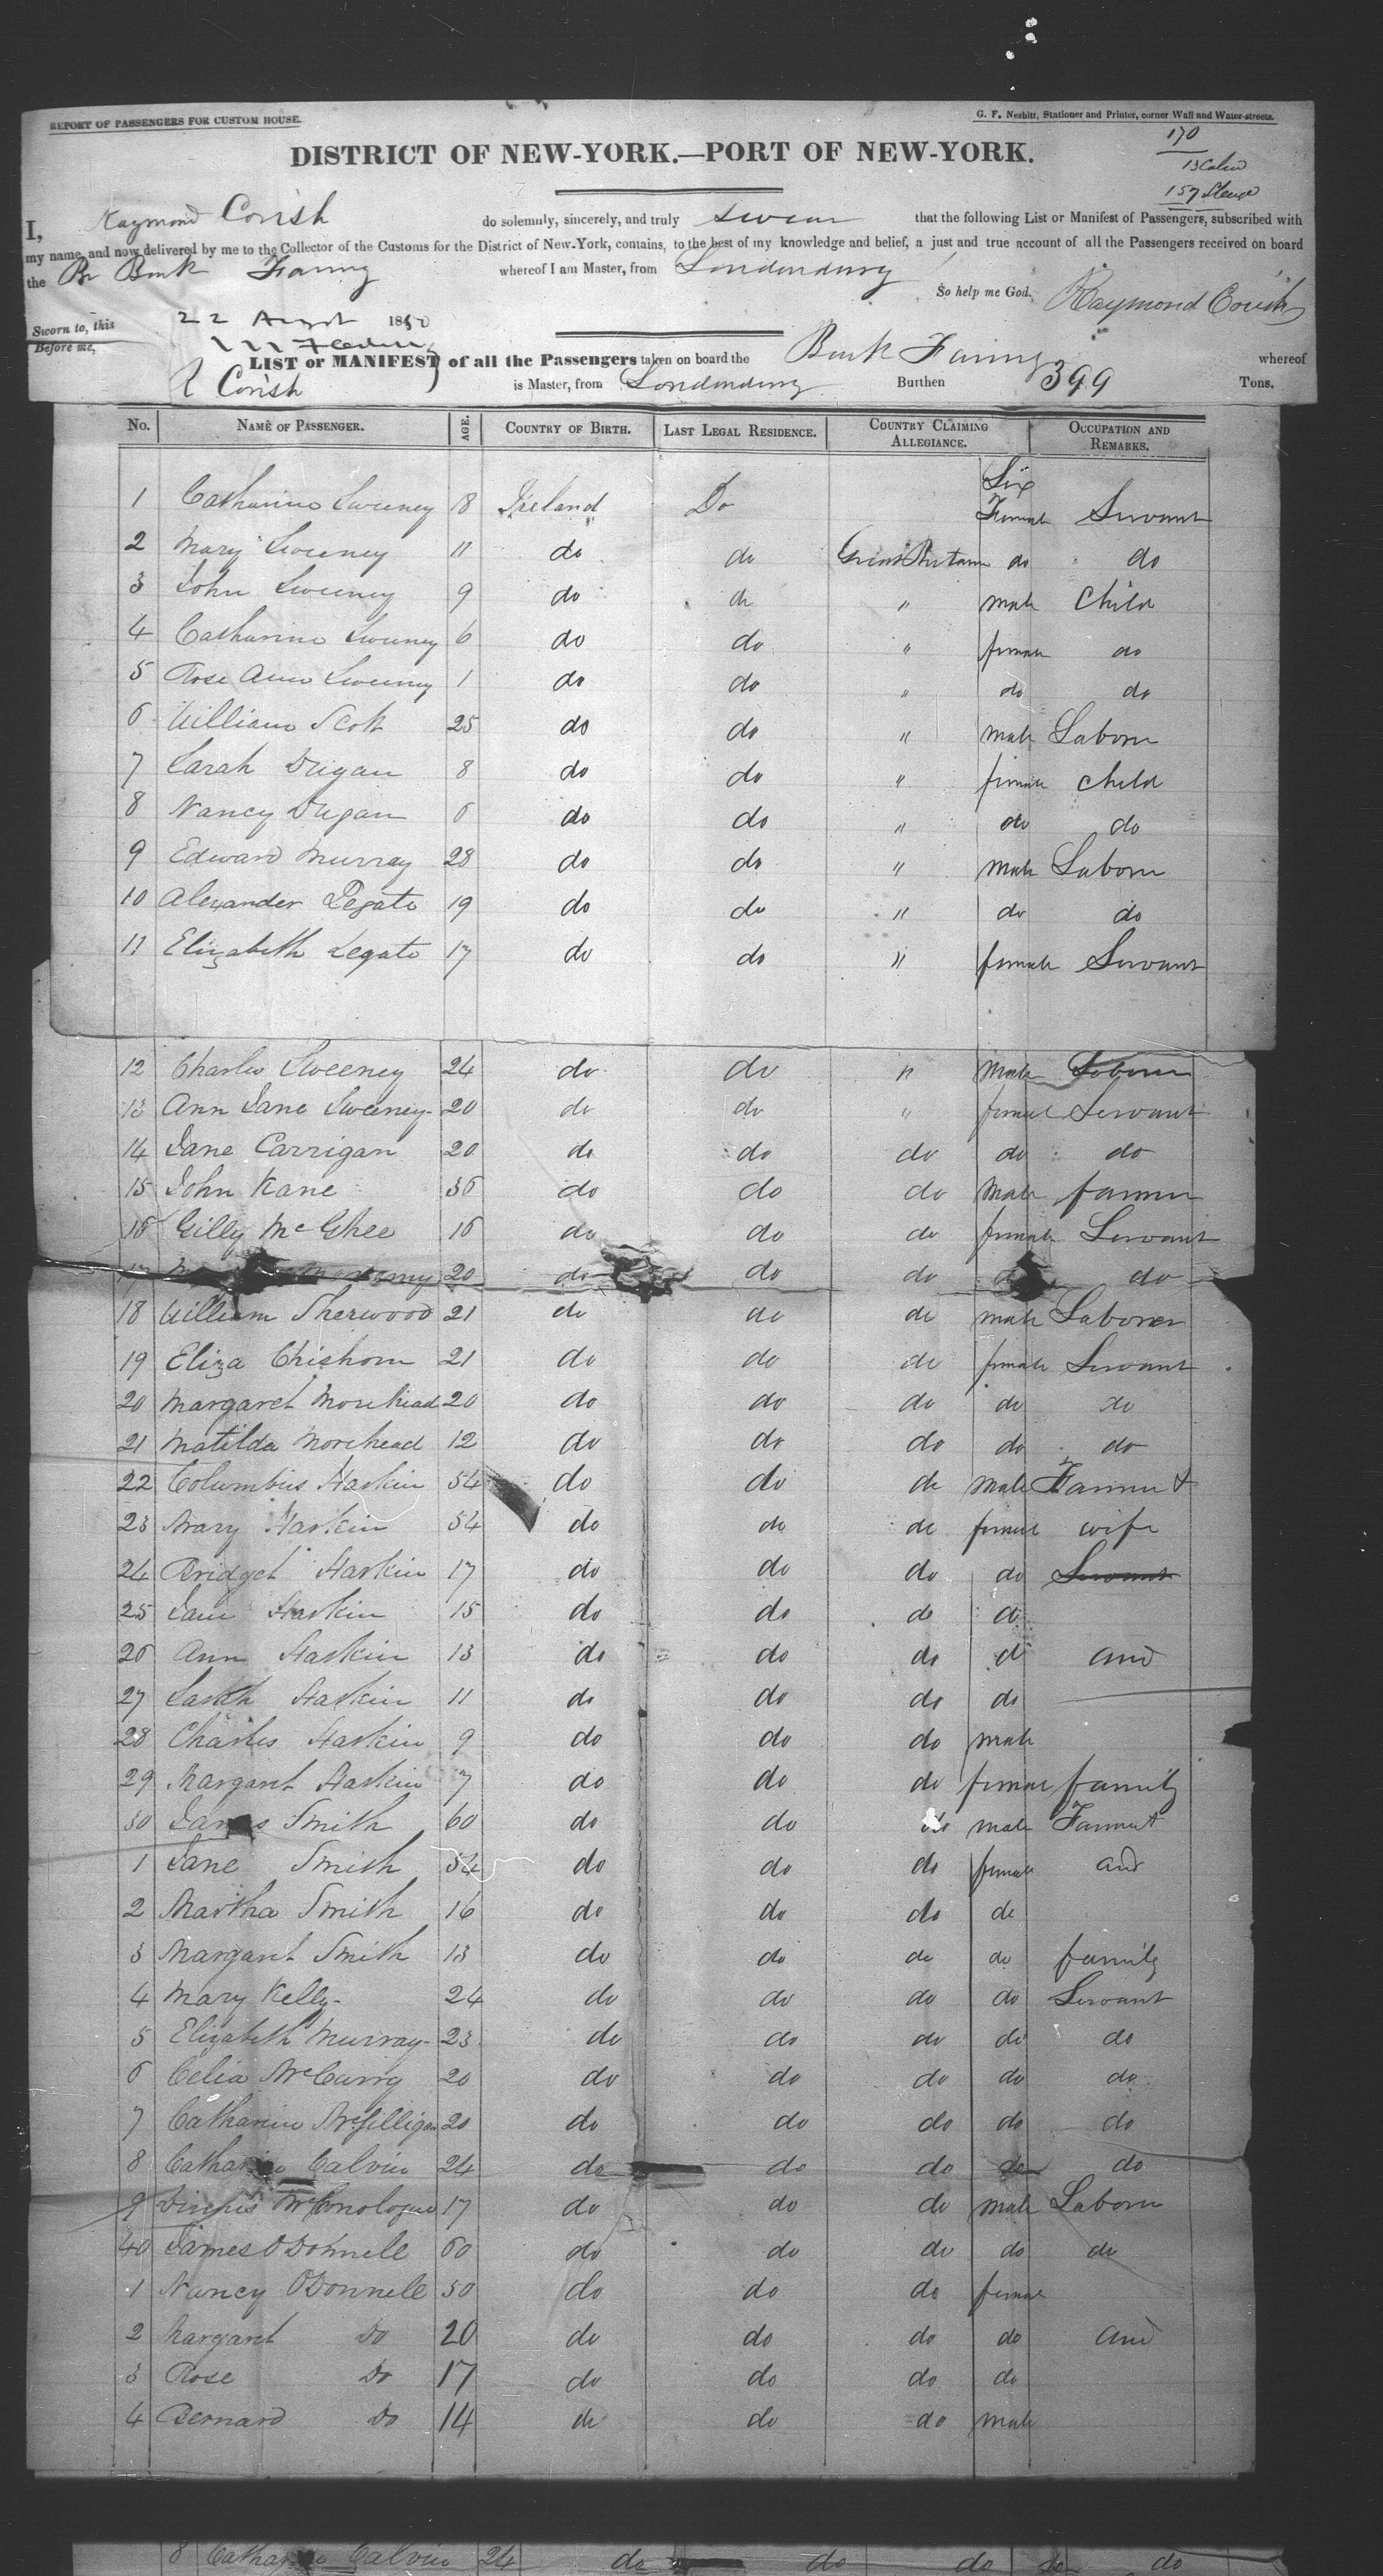 REPORT OF PASSENGERS FOR CUSTOM HOUSE.
G. F. Nesbitt, Stationer and Printer, corner Wall and Water-streets.
170
DISTRICT OF NEW-YORK.—PORT OF NEW-YORK.
13 Cabin
157 Steerge
I, Raymond Corish do solemnly, sincerely, and truly swear that the following List or Manifest of Passengers, subscribed with
my name, and now delivered by me to the Collector of the Customs for the District of New-York, contains, to the best of my knowledge and belief, a just and true account of all the Passengers received on board
the Br Bark Fanny whereof I am Master, from Londonderry
So help me God. Raymond Corish
Sworn to, this 22 Augst 1850
Before me,
LIST or MANIFEST of all the Passengers taken on board the Bark Fanny whereof
R Corish is Master, from Londonderry Burthen 399 Tons.
No. NAME OF PASSENGER. AGE. COUNTRY OF BIRTH. LAST LEGAL RESIDENCE. COUNTRY CLAIMING ALLEGIANCE. OCCUPATION AND REMARKS.
Sex
1 Catharine Sweeney 18 Ireland Do Female Servant
2 Mary Sweeney 11 do do Great Britain do do
3 John Sweeney 9 do do " male Child
4 Catharine Sweeney 6 do do " female do
5 Rose Ann Sweeney 1 do do " do do
6 William Scott 25 do do " male Laborer
7 Sarah Dugan 8 do do " female child
8 Nancy Dugan 6 do do " do do
9 Edward Murray 28 do do " male Laborer
10 Alexander Legate 19 do do " do do
11 Elizabeth Legate 17 do do " female Servant
12 Charles Sweeney 24 do do " male Laborer
13 Ann Jane Sweeney 20 do do " female Servant
14 Jane Carrigan 20 do do do do do
15 John Kane 36 do do do male farmer
16 Gilly McGhee 16 do do do female Servant
17 20 do do do do
18 William Sherwood 21 do do do male Laborer
19 Eliza Chishom 21 do do do female Servant
20 Margaret Morehead 20 do do do do do
21 Matilda Morehead 12 do do do do do
22 Columbus Haskin 54 do do do male Farmer &
23 Mary Haskin 54 do do do female wife
24 Bridget Haskin 17 do do do do Servant
25 Jane Haskin 15 do do do do
26 Ann Haskin 13 do do do do and
27 Sarah Haskin 11 do do do do
28 Charles Haskin 9 do do do male
29 Margaret Haskin 7 do do do female family
30 James Smith 60 do do do male Farmer &
1 Jane Smith 54 do do do female and
2 Martha Smith 16 do do do do
3 Margaret Smith 13 do do do do family
4 Mary Kelly 24 do do do do Servant
5 Elizabeth Murray 23 do do do do do
6 Celia McCurry 20 do do do do do
7 Catharine McGilligan 20 do do do do do
8 Catharine Calvin 24 do do do do do
9 McConologue 17 do do do male Laborer
40 James O'Donnell 60 do do do do do
1 Nancy O'Donnell 50 do do do female
2 Margaret Do 20 do do do do and
3 Rose Do 17 do do do do
4 Bernard Do 14 do do do male
8 Catharine Calvin 24 do do do do do